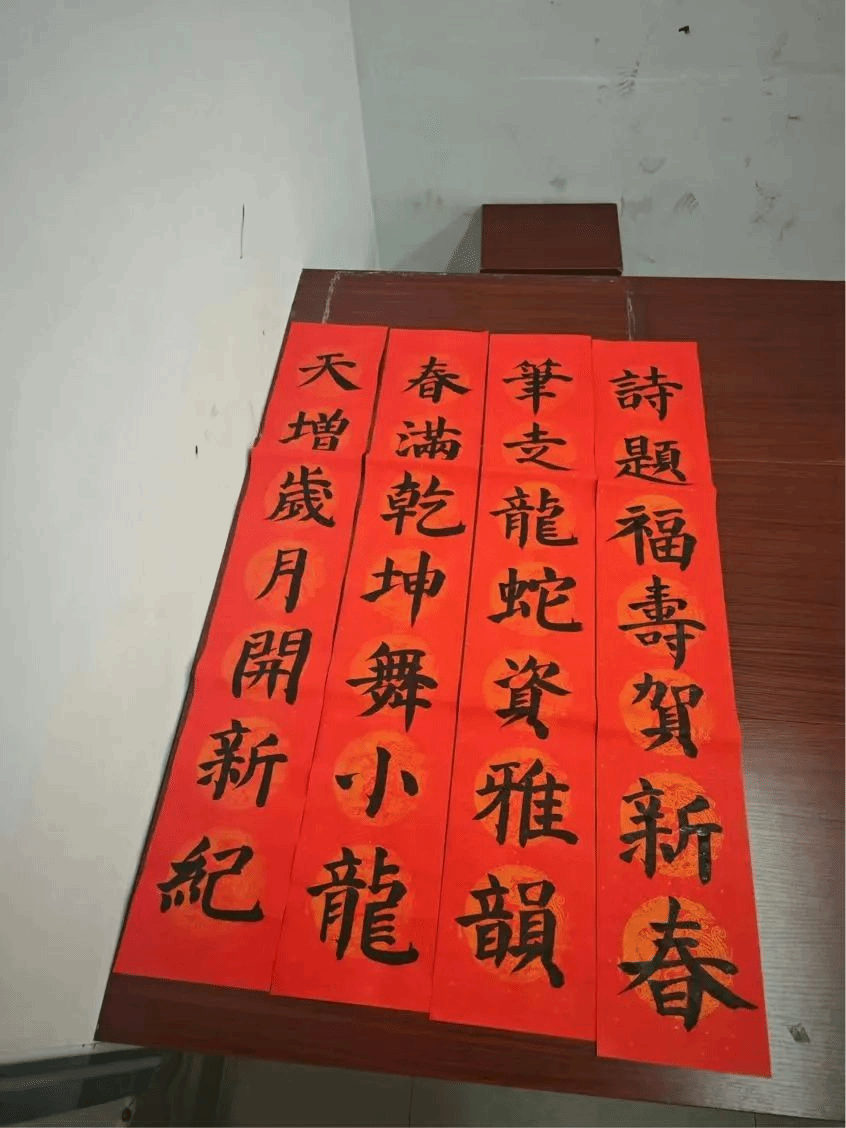 詩題福壽賀新春
筆走龍蛇資雅韻
春滿乾坤舞小龍
天增歲月開新紀